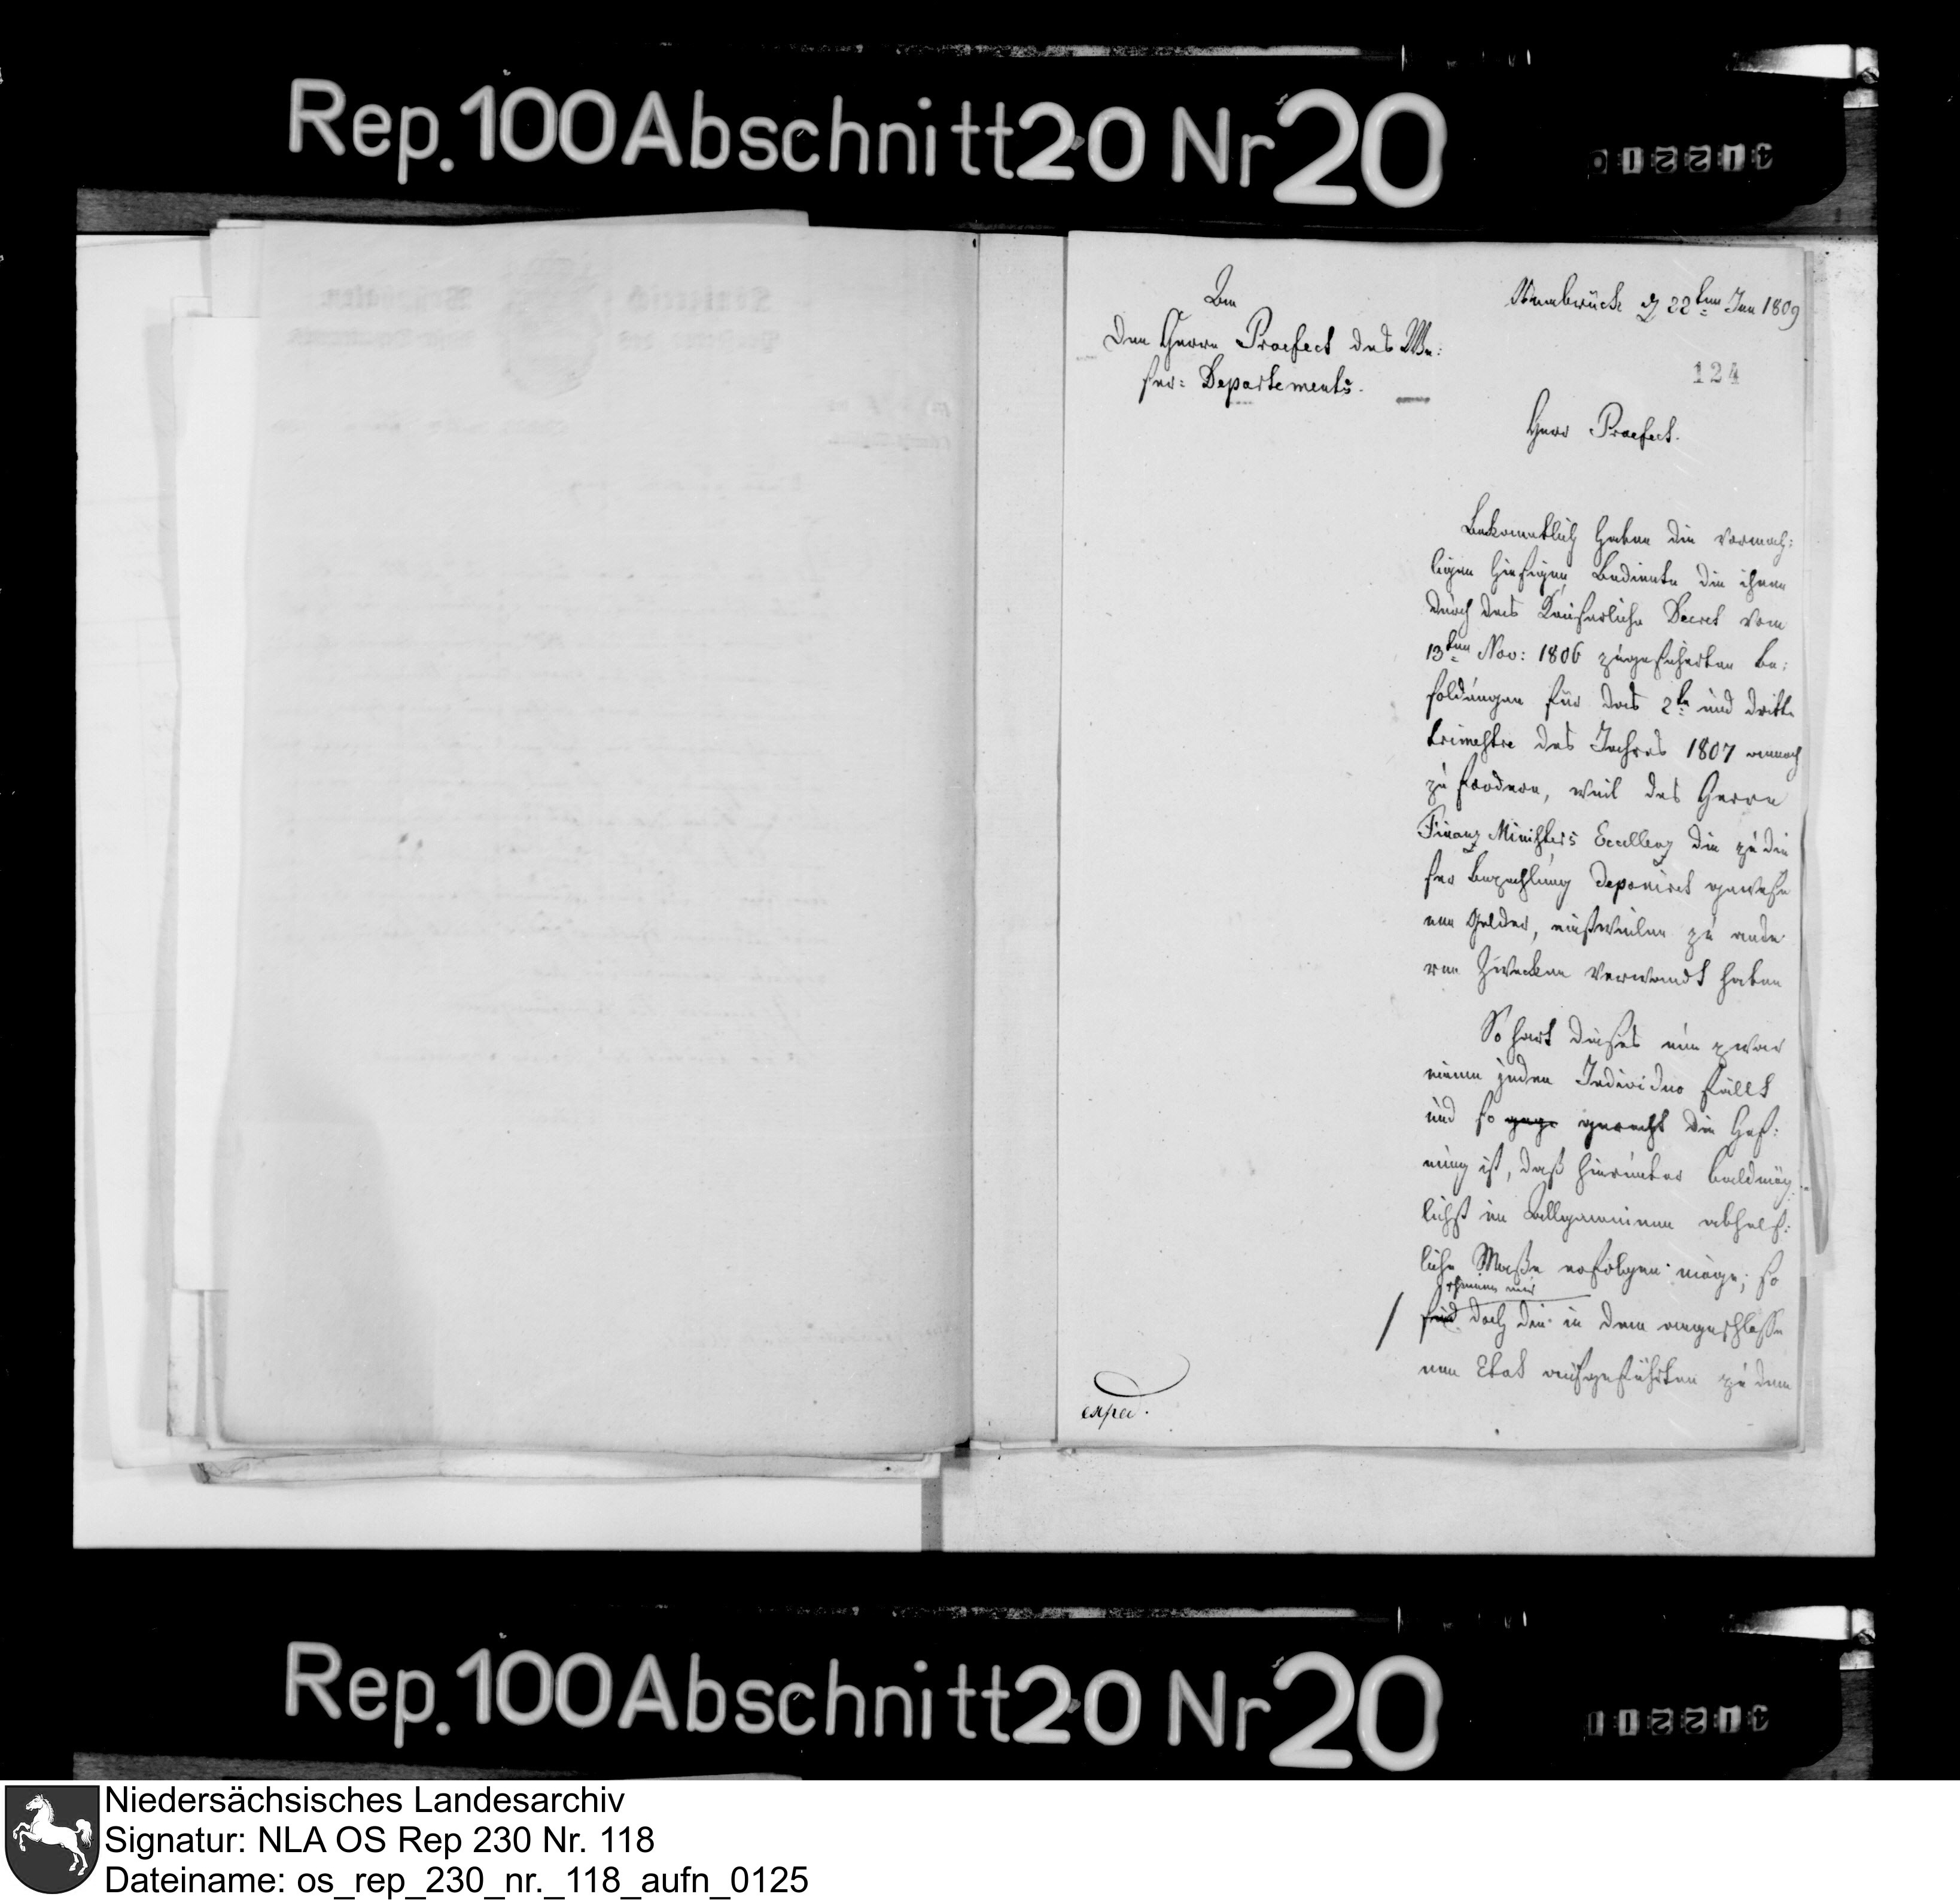 Rep. 100 Abschnitt 20 Nr 20
An
Den Herrn Praefect des We:
ser: Departements.
Osnabrück d 22ten Jan 1809
124
Herr Praefect.
Bekanntlich haben die vormah:
ligen hiesigen Bediente die ihnen
durch das Kaiserliche Decret vom
13ten Nov: 1806 zugesicherten Be:
soldungen für das 2te und dritte
trimestre des Jahres 1807 annoch
zu fordern, weil des Herrn
Finanz Ministers Excellenz die zu die
ser Bezahlung deponirt gewese
nen Gelder, einstweilen zu ande
ren Zwecken verwandt haben
So hart dieses nun zwar
einem jeden Individuo fällt
und so gerecht die Hof:
nung ist, daß hierunter baldmög:
lichst im Allgemeinen abhelf:
liche Maße erfolgen möge; so
scheinen mir
sind doch die in dem angeschlosse
nen Etat aufgeführten zu dem
exped.
Rep. 100 Abschnitt 20 Nr 20
Niedersächsisches Landesarchiv
Signatur: NLA OS Rep 230 Nr. 118
Dateiname: os_rep_230_nr._118_aufn_0125